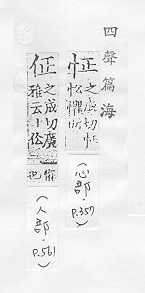 四聲篇海
怔
之成切怔
忪懼
(心部.P.357)
佂
之成切廣
雅云丨伀
也
(人部.P.561)